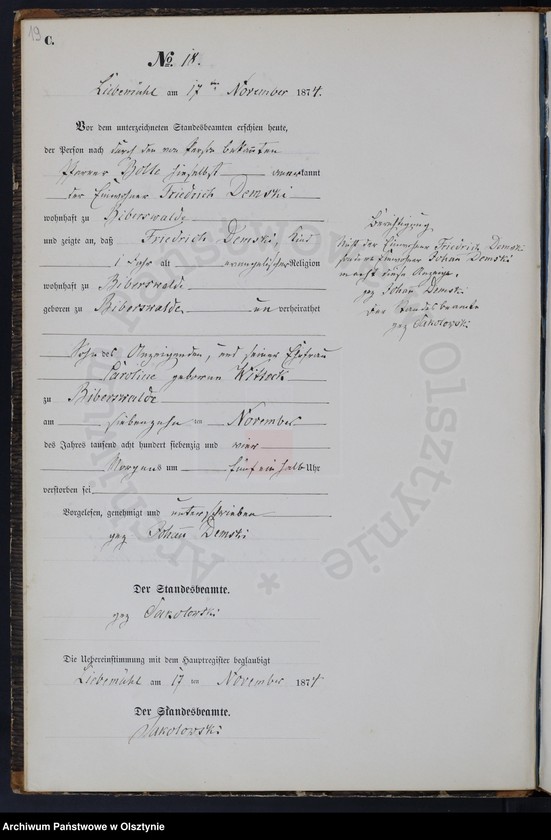 19
C.
No. 18.
Liebemühl am 17ten November 1874.
Vor dem unterzeichneten Standesbeamten erschien heute,
der Person nach durch den von Person bekannten
Pfarrer Bolle hierselbst anerkannt
der Einwohner Friedrich Demski
wohnhaft zu Biberswalde
und zeigte an, daß Friedrich Demski, Kind
1 Jahr alt evangelischer Religion
wohnhaft zu Biberswalde
geboren zu Biberswalde, unverheirathet
Sohn des Anzeigenden, und seiner Ehefrau
Caroline geborenen
zu Biberswalde
am siebenzehn ten November
des Jahres tausend acht hundert siebenzig und vier
Morgens um fünf ein halb Uhr
verstorben sei
Vorgelesen, genehmigt und unterschrieben
gez Johann Demski
Der Standesbeamte.
gez Sakolowski
Die Uebereinstimmung mit dem Hauptregister beglaubigt
Liebemühl am 17 ten November 1874
Der Standesbeamte.
Sakolowski
Berichtigung.
Nicht der Einwohner Friedrich Demski
sondern Einwohner Johann Demski
macht diese Anzeige.
gez Johann Demski
Der Standesbeamte
gez Sakolowski
Archiwum Państwowe w Olsztynie
Archiwum Państwowe w Olsztynie